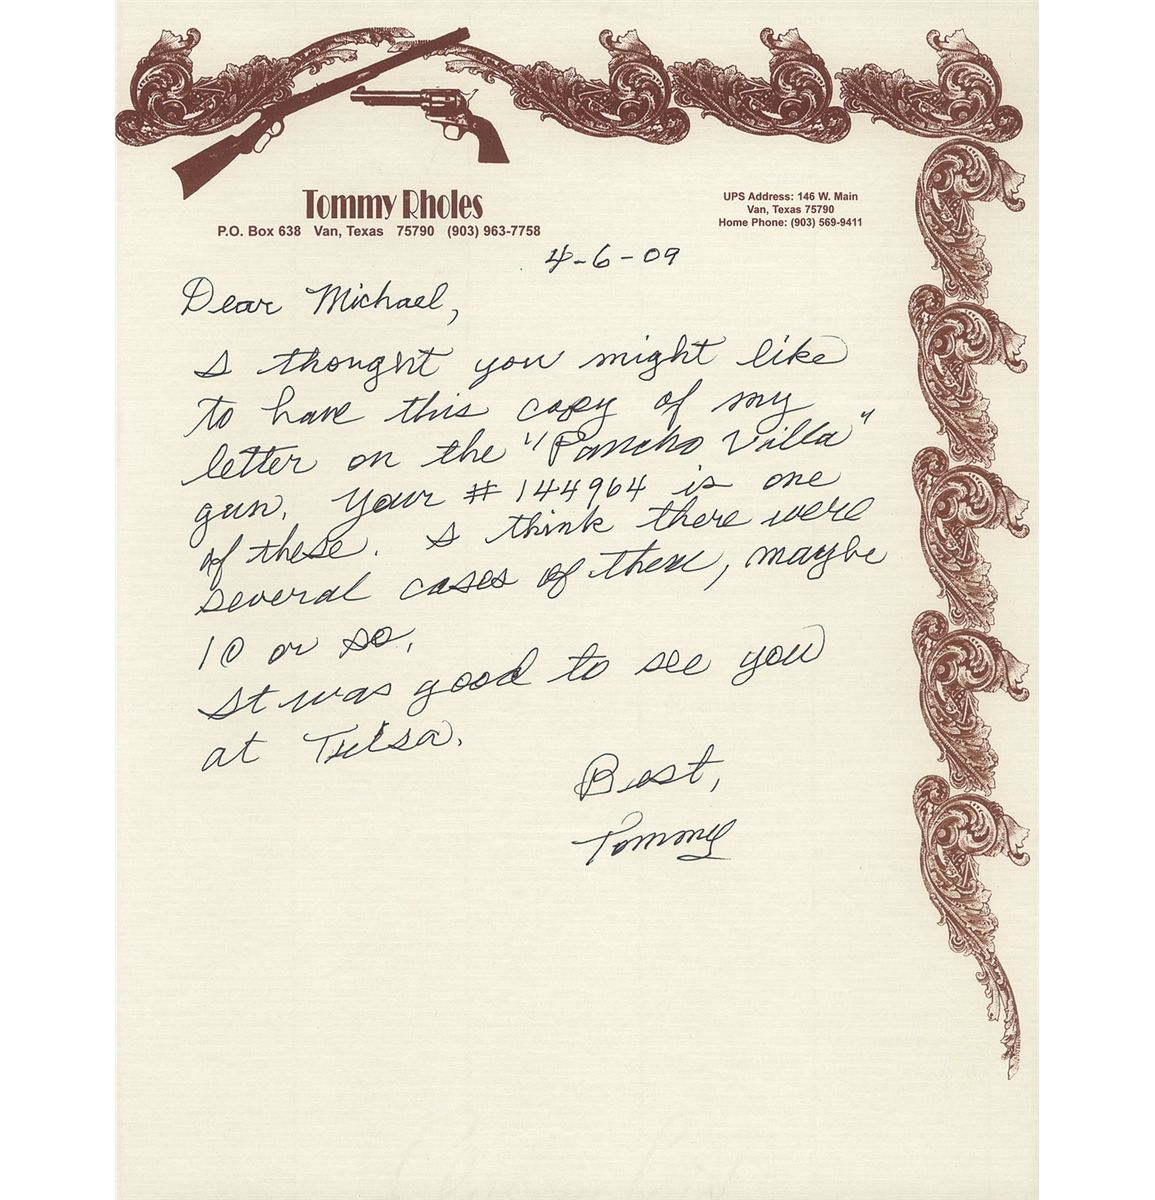 Tommy Rholes
P.O. Box 638 Van, Texas 75790 (903) 963-7758
UPS Address: 146 W. Main
Van, Texas 75790
Home Phone: (903) 569-9411
4-6-09
Dear Michael,
I thought you might like
to have this copy of my
letter on the "Pancho Villa"
gun. Your # 144964 is one
of these. I think there were
several cases of them, maybe
10 or so.
It was good to see you
at Tulsa.
Best,
Tommy